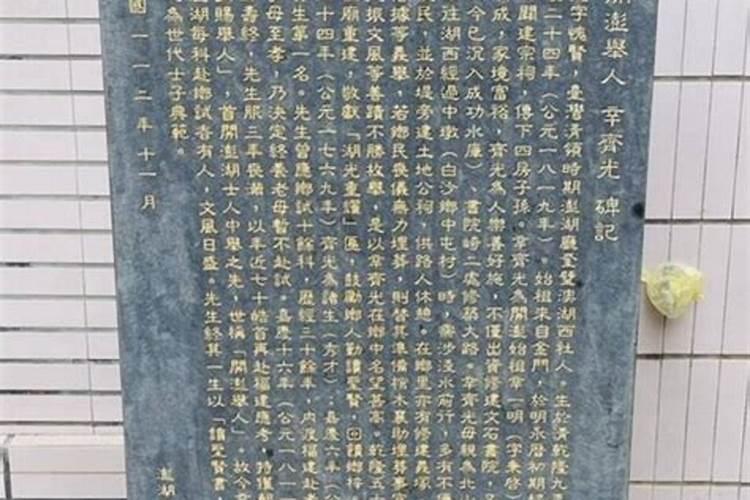 開澎舉人 辛齊光 碑記
字愧賢,臺灣清領時期澎湖廳奎壁澳湖西社人。生於清乾隆九
二十四年(公元一八一九年)。始祖來自金門,於明永曆初期
闢建宗祠,傳下四房子孫。辛齊光為開澎始祖辛一明(字秉啓
成,家境富裕,齊光為人樂善好施,不僅出資修建文石書院,
今已沉入成功水庫)、書院崎二處修築大路。辛齊光母親為北山
往湖西經過中墩(白沙鄉中屯村)時,需涉淺水前行,多有不便
民,並於堤旁建土地公祠,供路人休憩。在鄉里亦有修建義塚
借據等義舉,若鄉民喪儀無力埋葬,則替其準備棺木衾助埋葬事宜
振文風等善蹟不勝枚舉,是以辛齊光在鄉中名望甚高。乾隆五十
廟重建,敬獻「湖光重耀」匾,鼓勵鄉人勤讀聖賢,回饋鄉梓。
十四年(公元一七六九年)齊光為諸生(秀才)﹔嘉慶六年(公
生第一名。先生曾應鄉試十餘科,歷經三十餘年,內渡福建赴考
母至孝,乃決定終養老母暫不赴試。嘉慶十六年(公元一八一一
善終,先生服三年喪滿,以年近七十皓首再赴福建應考,特僅
賜舉人」,首開澎湖士人中舉之先,世稱「開澎舉人」。故今
湖每科赴鄉試者有人,文風日盛。先生終其一生以「讀聖賢書,
為世代士子典範。
國一一二年十一月
澎湖